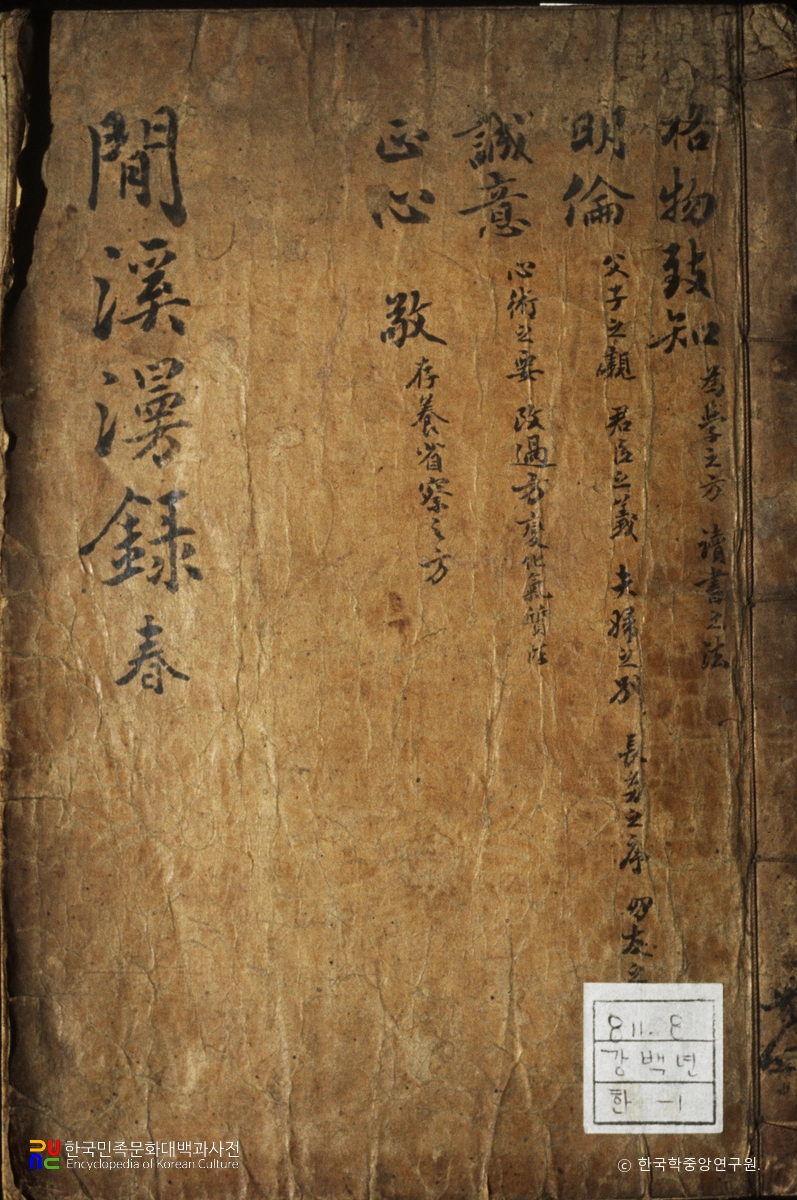 格物致知 為學之方 讀書之法
明倫 父子之親 君臣之義 夫婦之別 長幼之序 朋友之
誠意 心術之要 改過方 變化氣質法
正心 敬 存養省察之方
閒溪漫錄 春
811.8
강백년
한-1
한국민족문화대백과사전
Encyclopedia of Korean Culture
© 한국학중앙연구원.